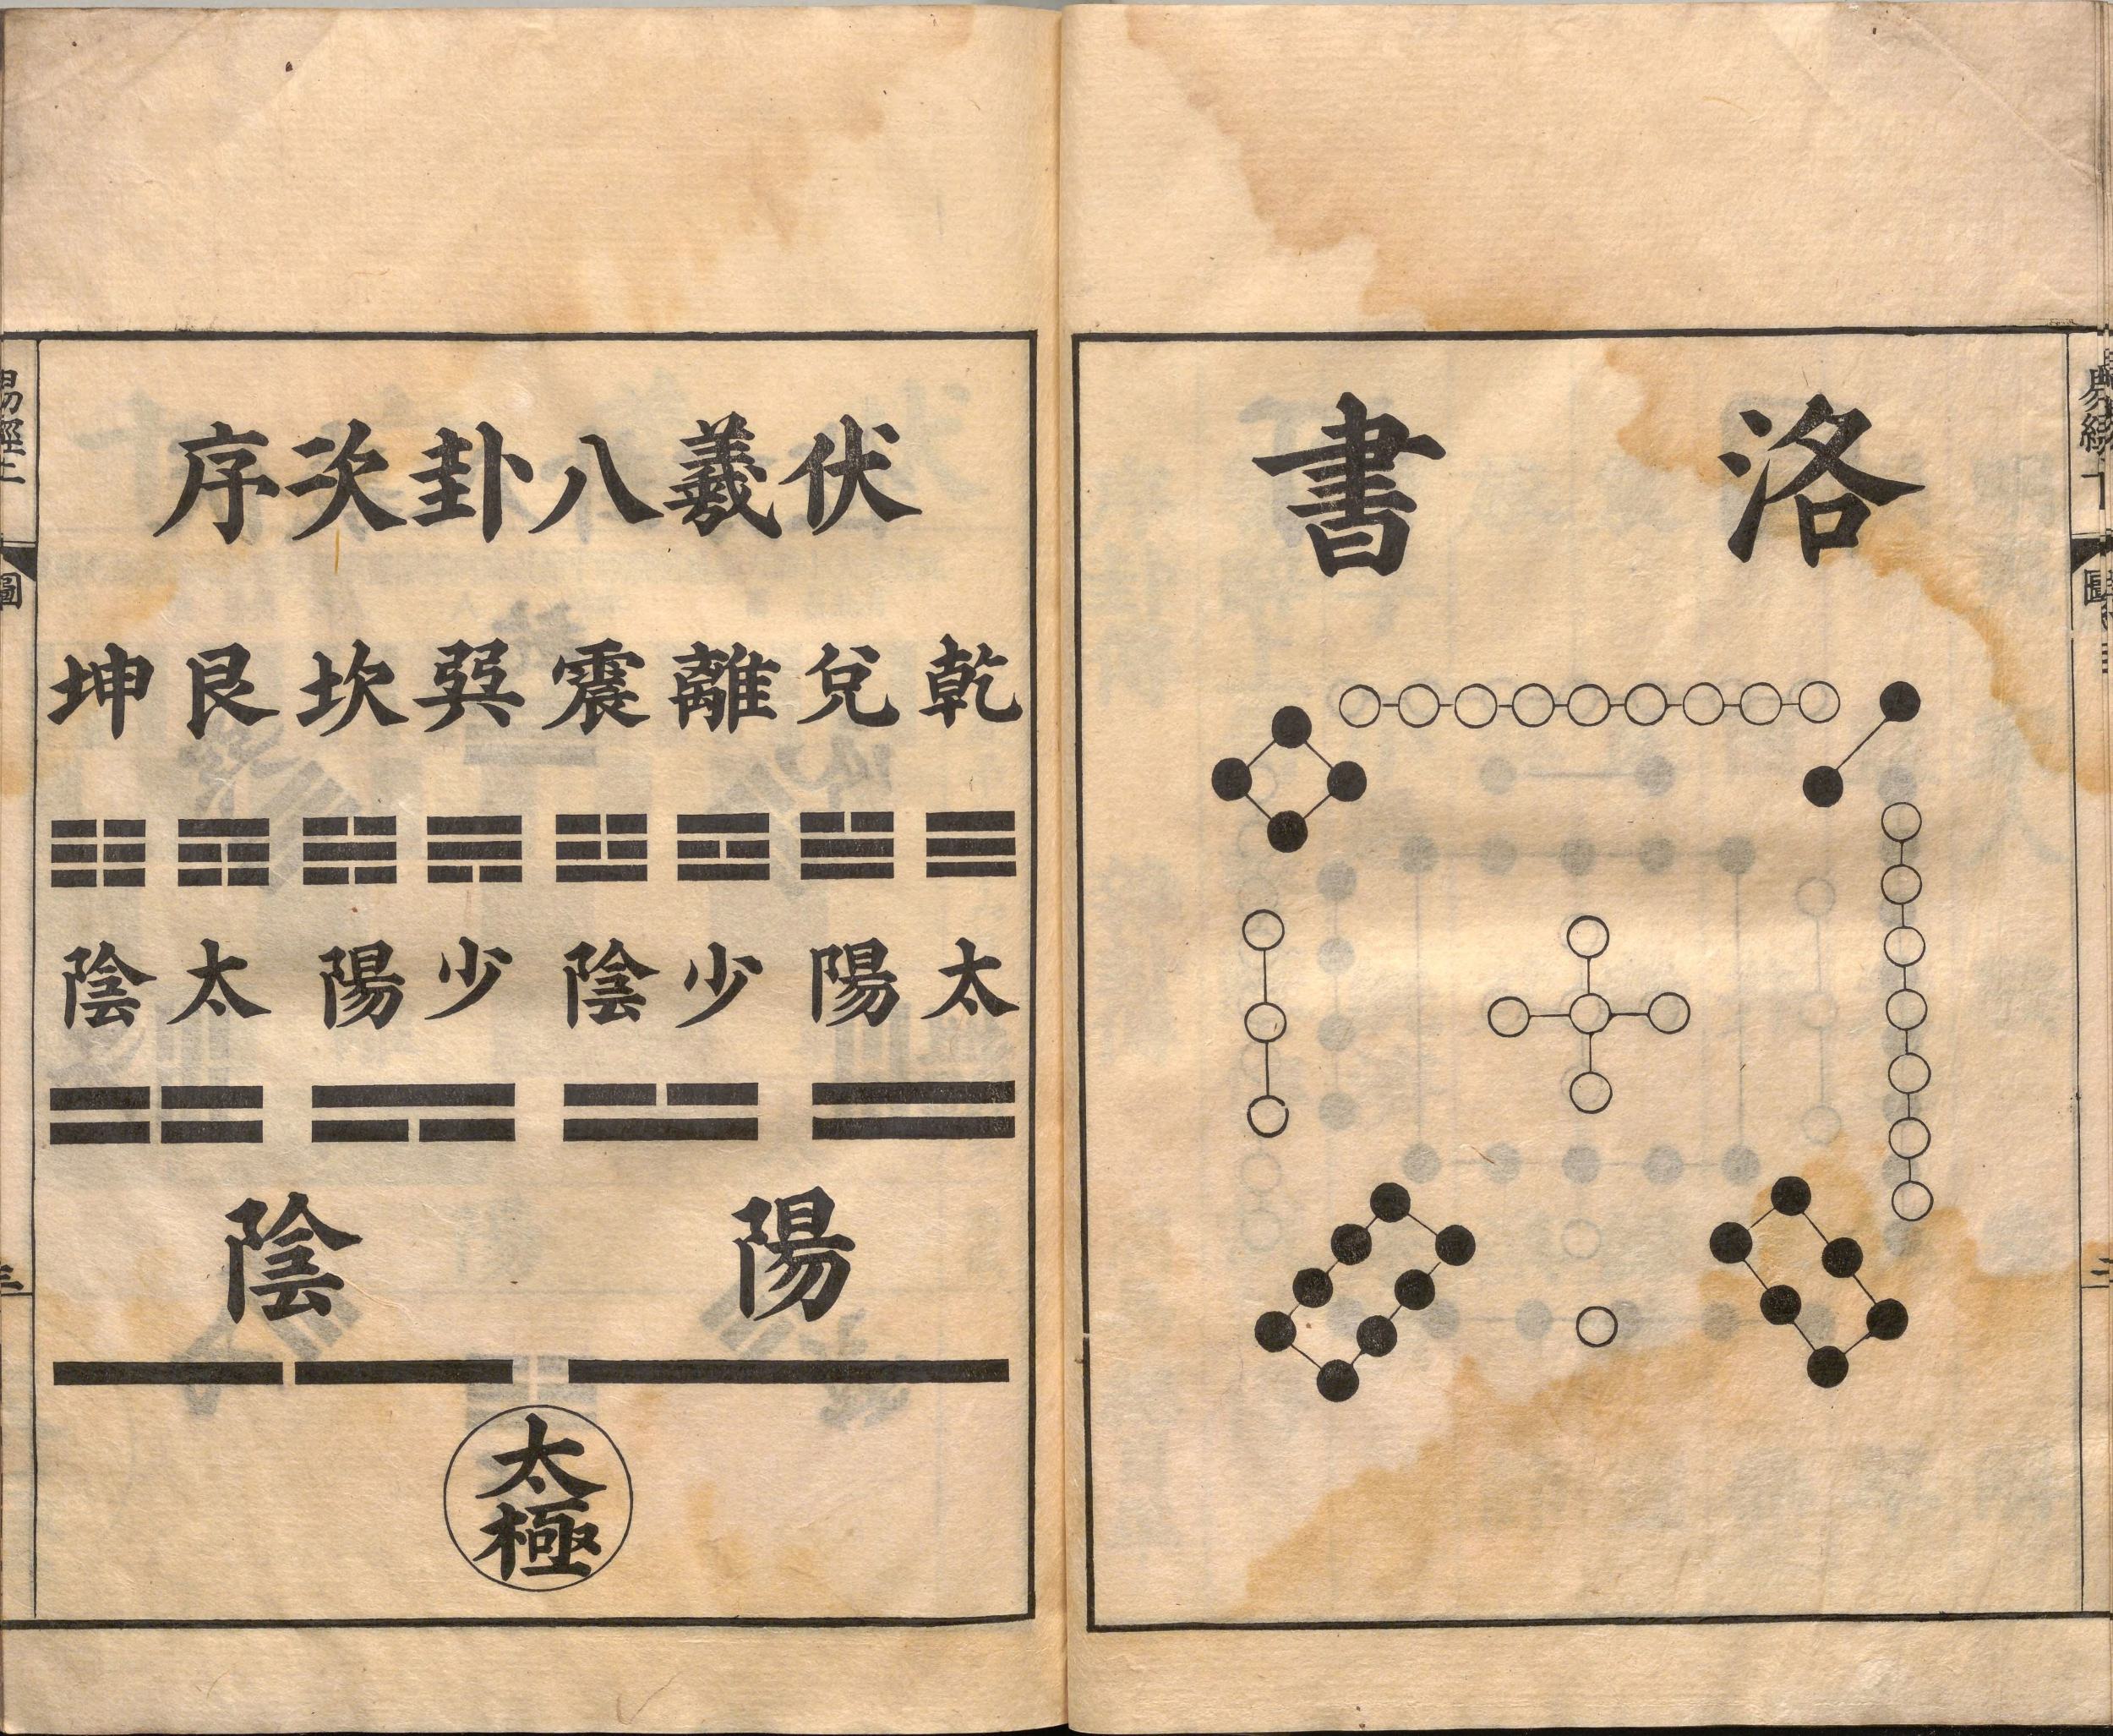 洛書
易經
圖
伏羲八卦次序
乾兌離震巽坎艮坤
太陽少陰少陽太陰
陽陰
太極
易經
圖
三